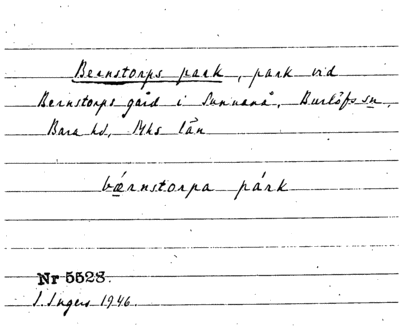 Bernstorps park, park vid
Bernstorps gård i Sunnanå, Burlöfs sn,
Bara hd, Mhs län
bǽrnstorpa párk
Nr 5528.
I. Ingers 1946.